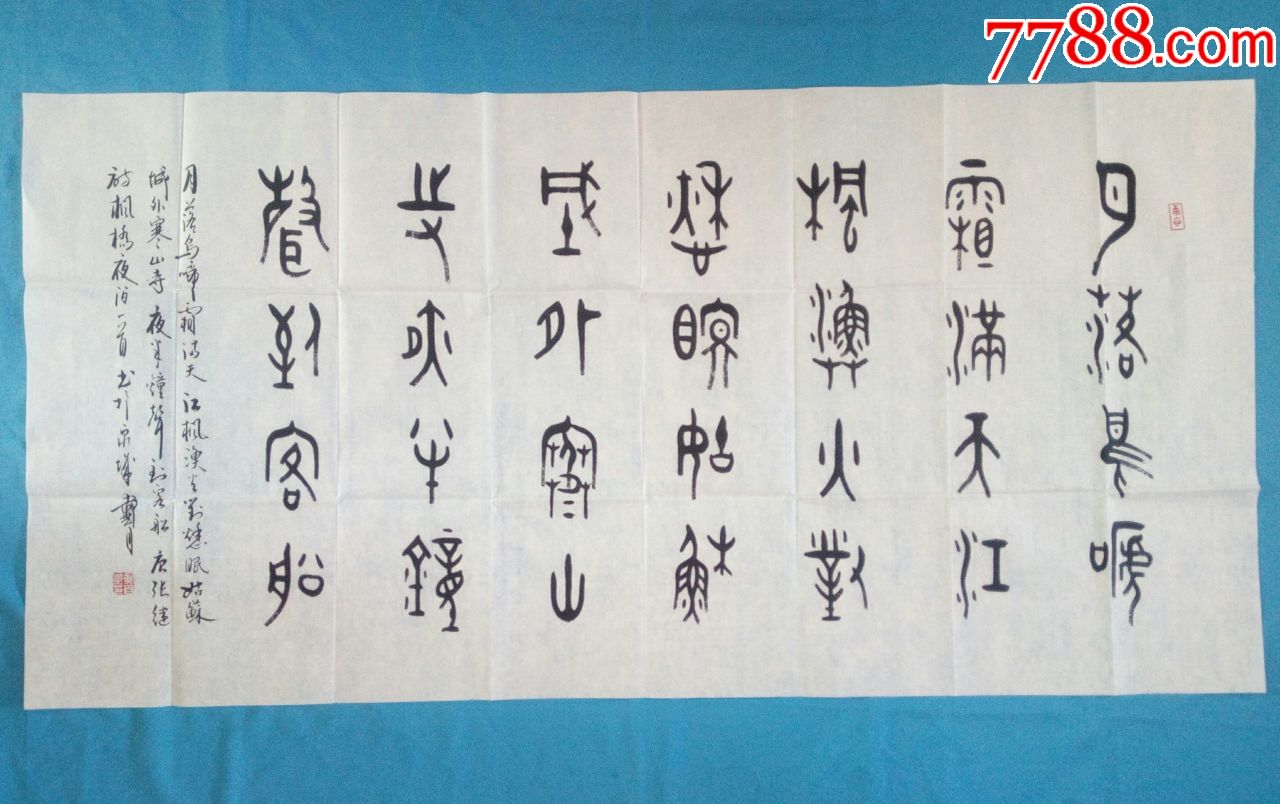 7788.com
月落烏啼
霜滿天江
楓漁火對
愁眠姑蘇
城外寒山
寺夜半鐘
聲到客船
月落烏啼霜满天江楓漁火對愁眠姑蘇
城外寒山寺夜半鐘聲到客船唐张继
詩楓橋夜泊一首书於泉城月